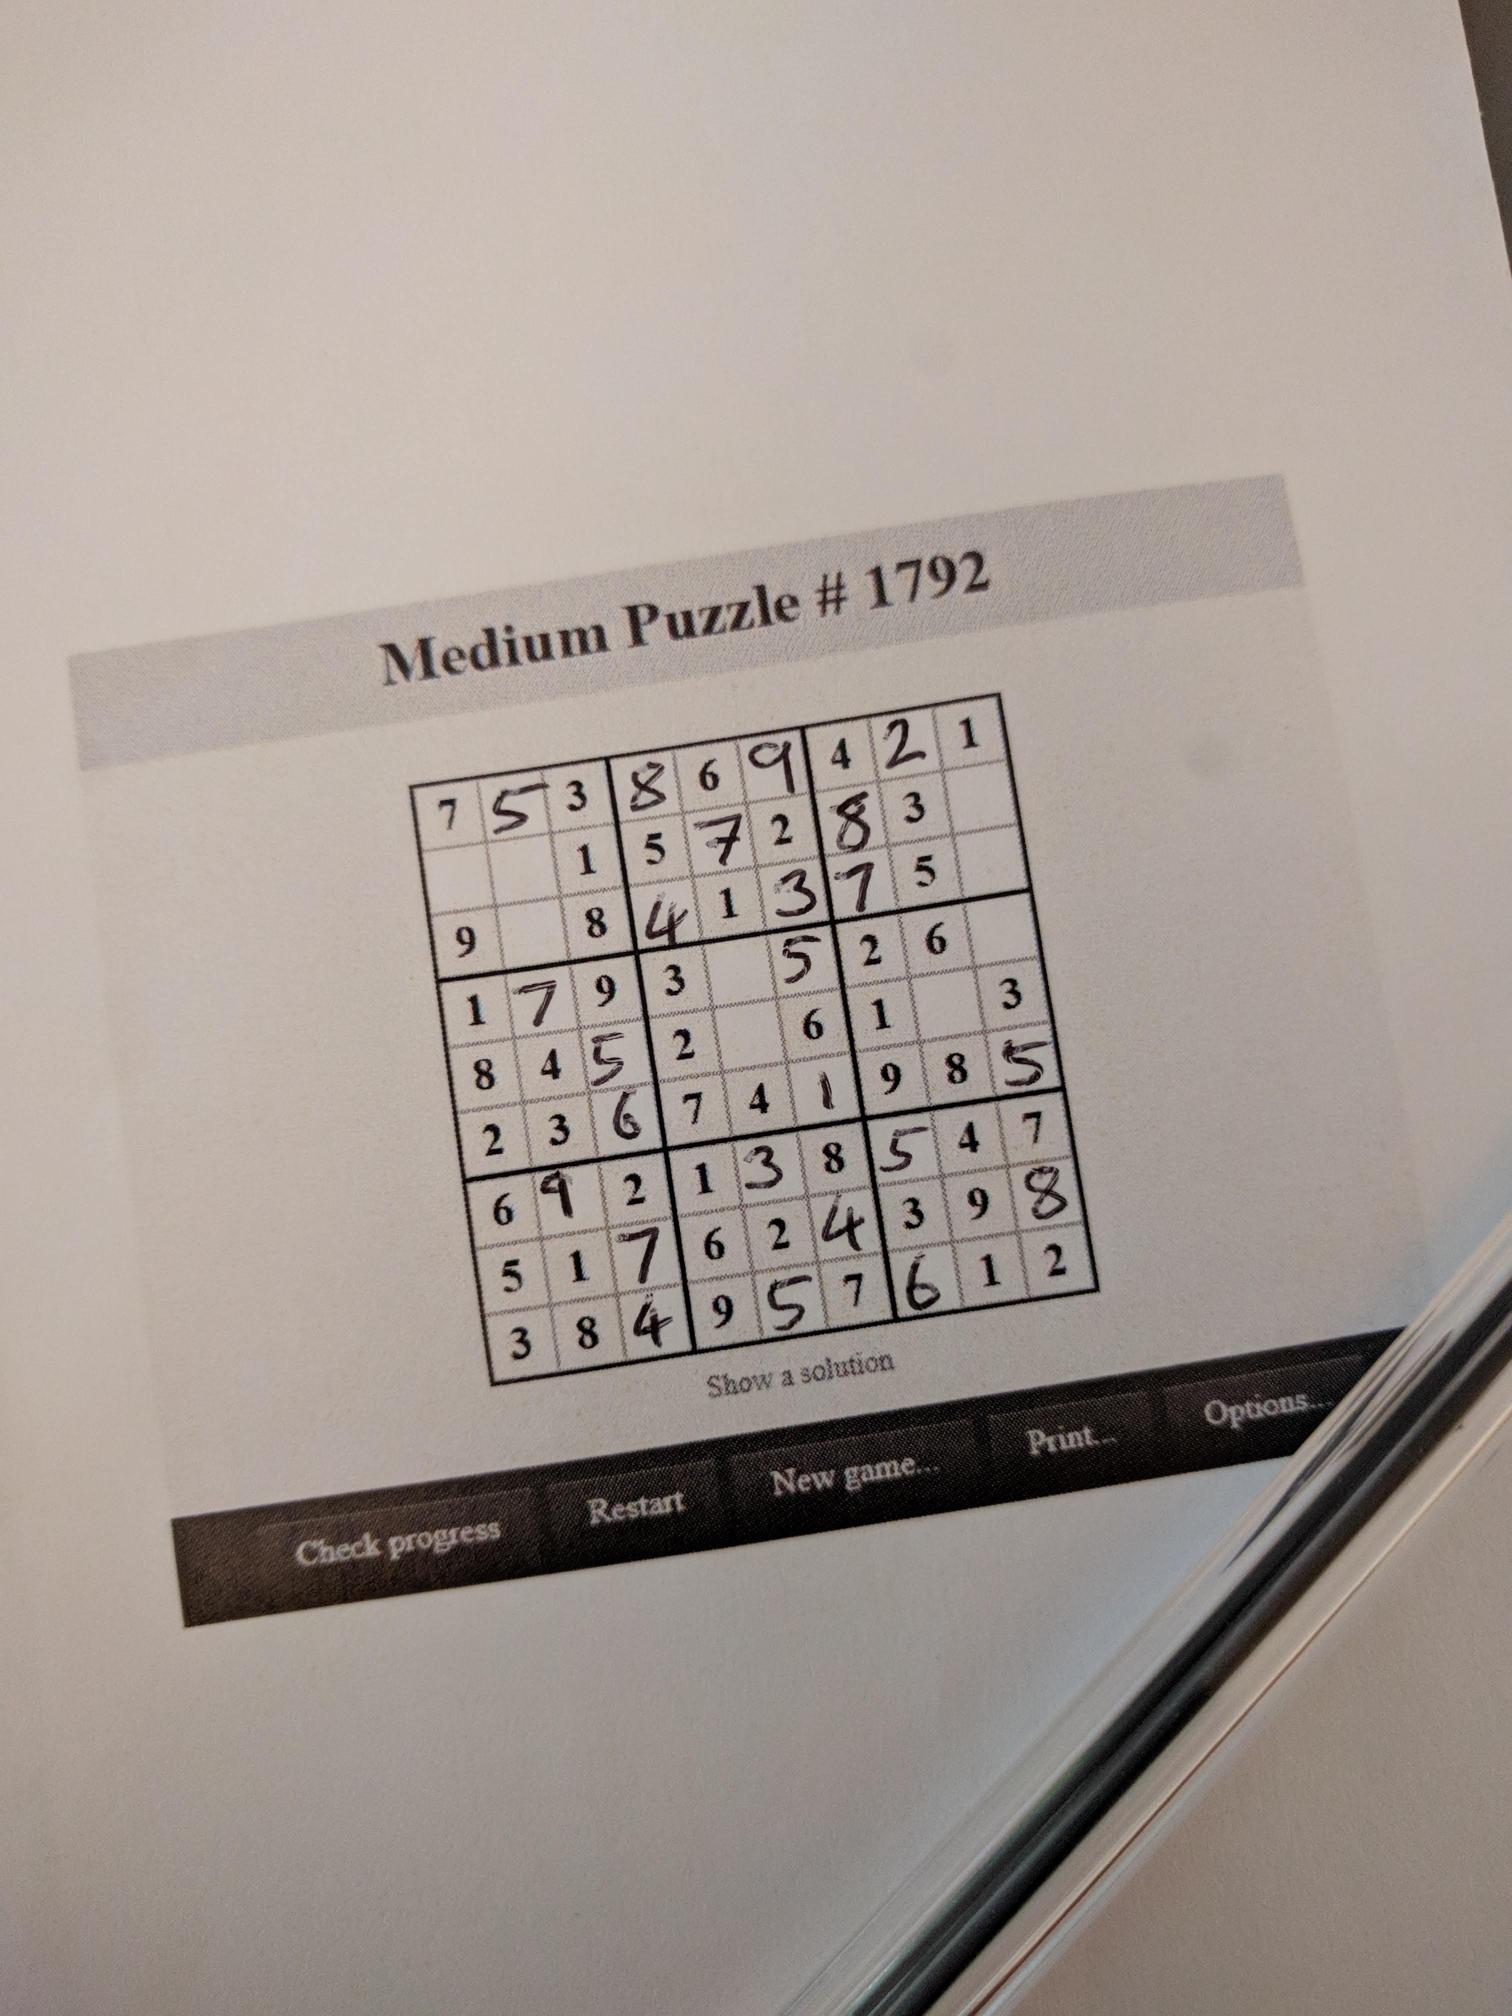 Medium Puzzle # 1792
7 5 3 8 6 9 4 2 1
1 5 7 2 8 3
9 8 4 1 3 7 5
1 7 9 3 5 2 6
8 4 5 2 6 1 3
2 3 6 7 4 1 9 8 5
6 9 2 1 3 8 5 4 7
5 1 7 6 2 4 3 9 8
3 8 4 9 5 7 6 1 2
Show a solution
Check progress Restart New game... Print... Options...